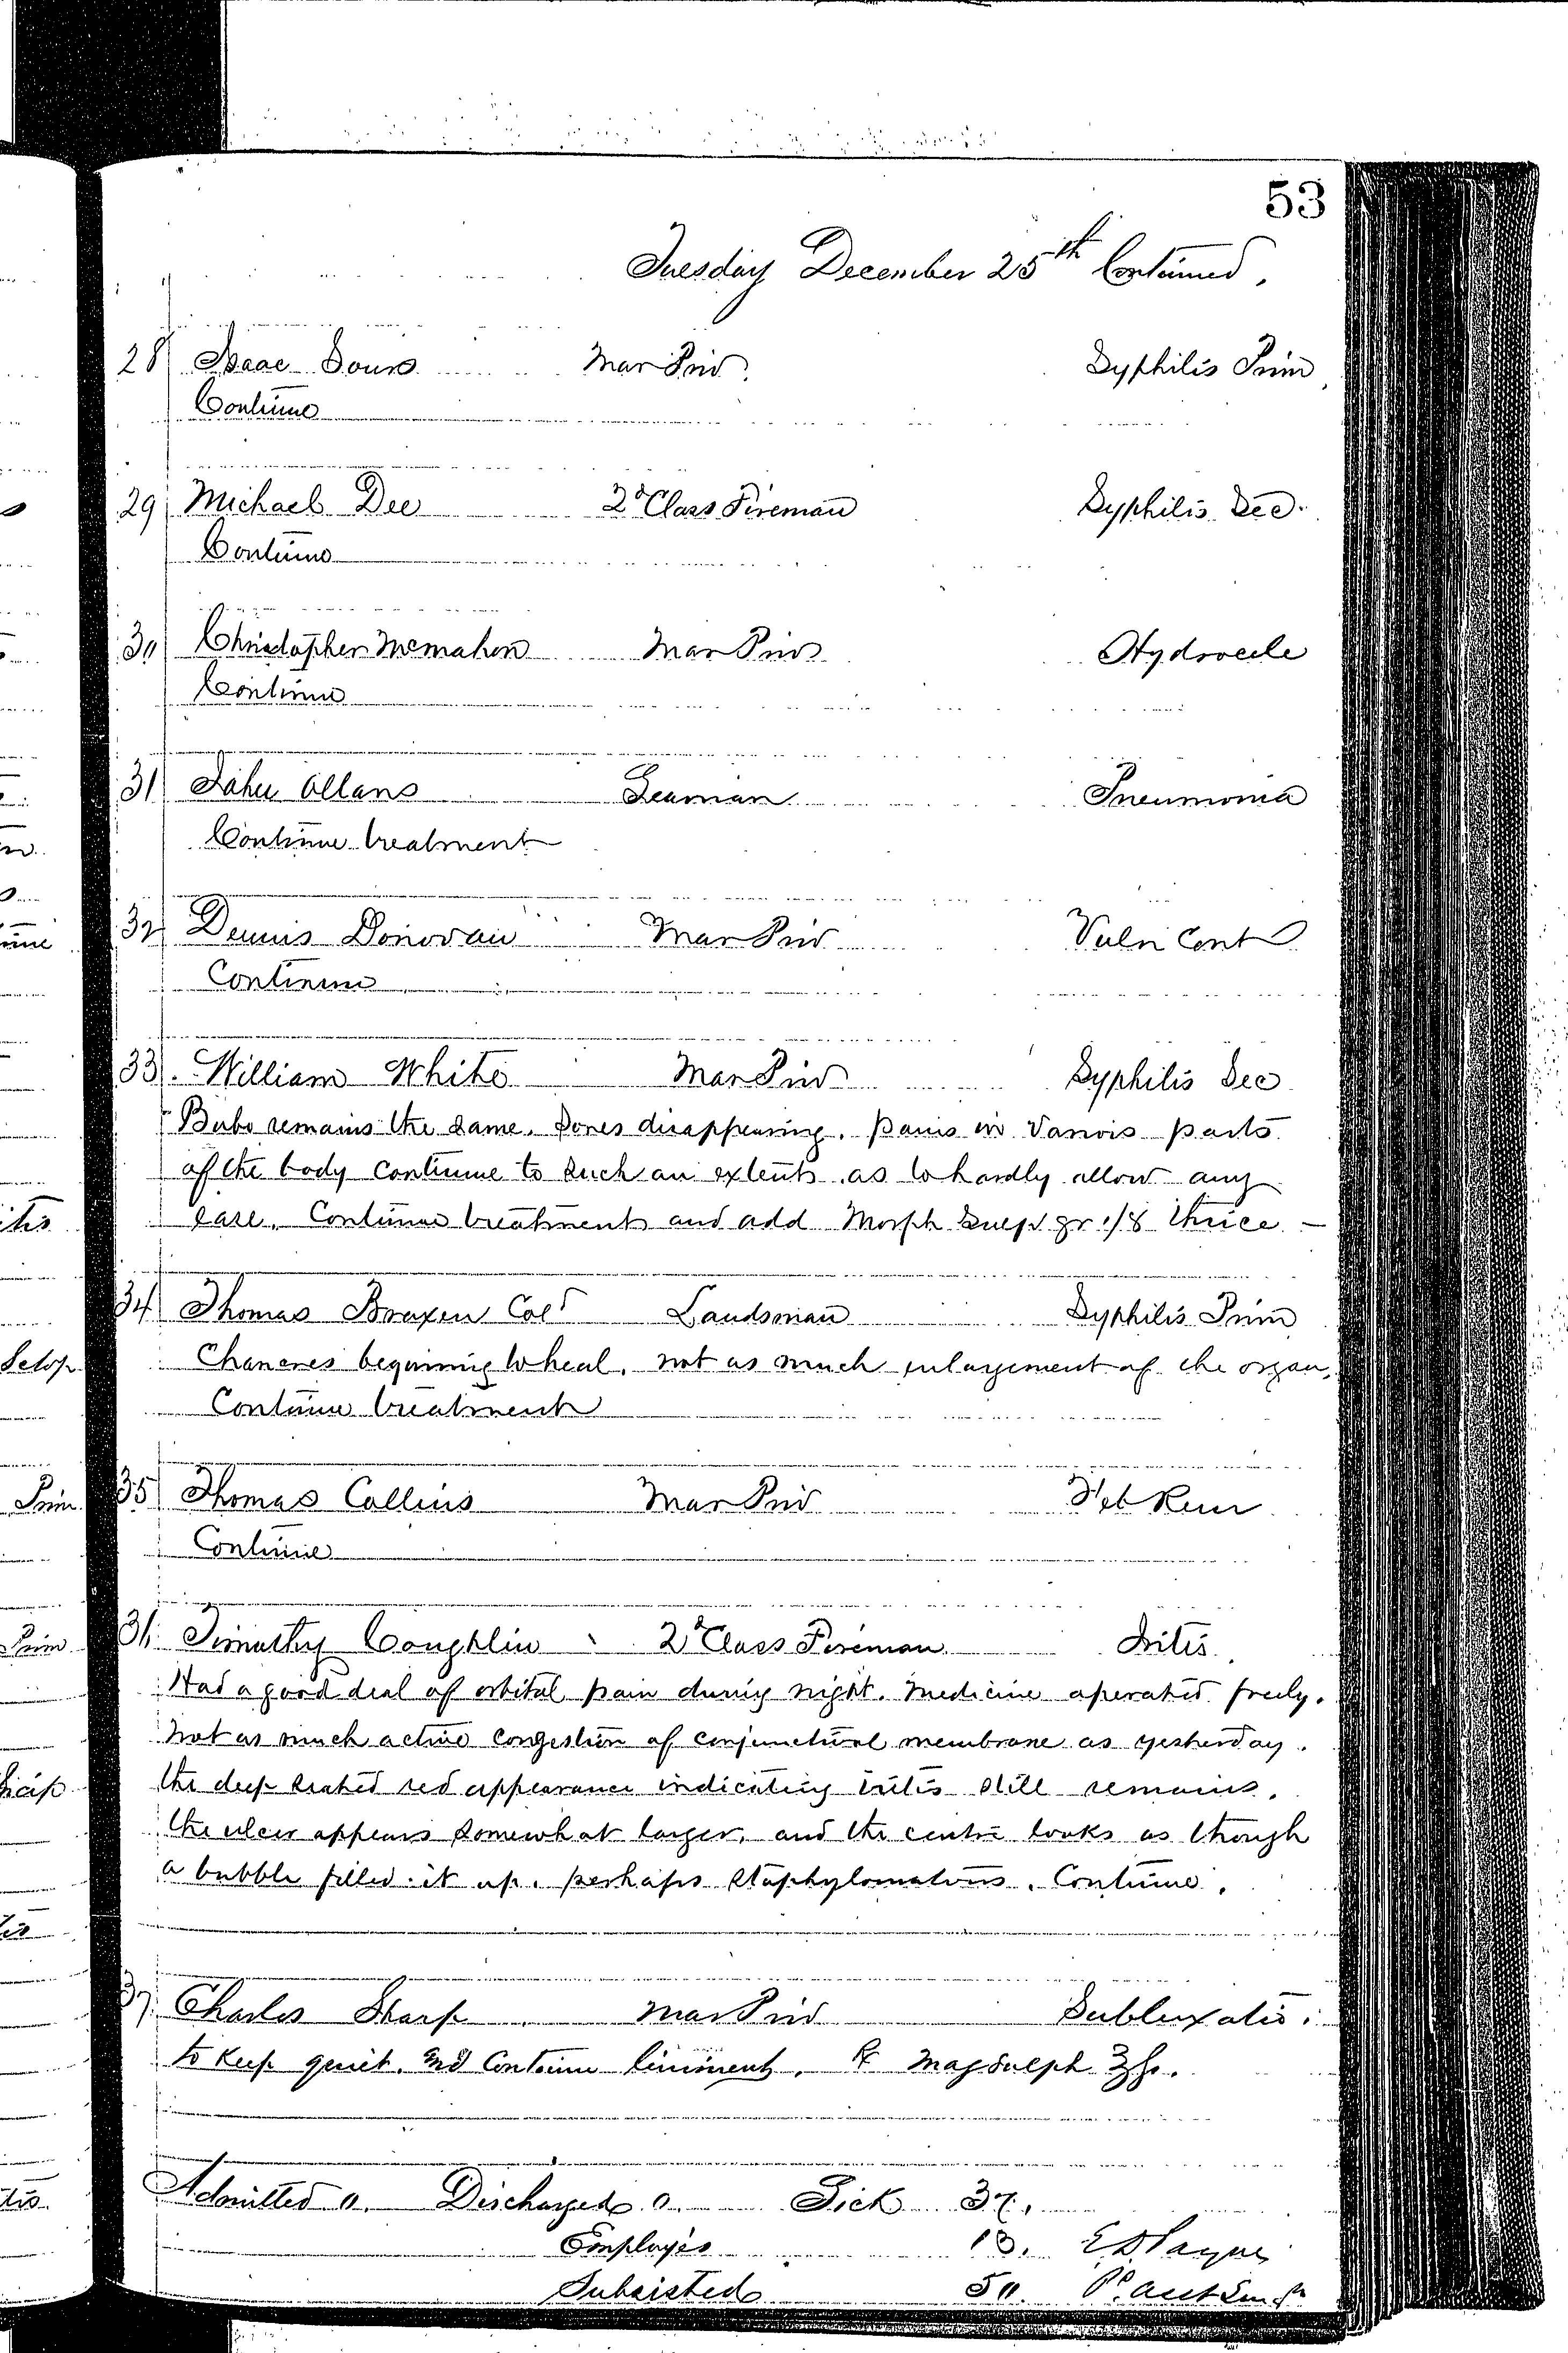 53
Tuesday December 25th Continued.
28 Isaac Mar Priv. Syphilis Prim
Continue
29 Michael Dee 2d Class Fireman Syphilis Sec.
Continue
30 Christopher McMahon Mar Priv Hydrocele
Continue
31 John Allans Seaman Pneumonia
Continue treatment
32 Dennis Donovan Mar Priv Vuln Cont
Continue
33. William White Mar Priv Syphilis Sec
Bubo remains the same. Sores disappearing. pains in various parts
of the body continue to such an extent as to hardly allow any
ease. Continue treatment and add Morph Sulp gr 1/8 thrice –
34 Thomas Braxen Cold Landsman Syphilis Prim
Chancres beginning to heal. not as much enlargement of the organ.
Continue treatment
35 Thomas Collins Mar Priv Feb Rem
Continue
36 Timothy Coughlin 2d Class Fireman Iritis.
Had a good deal of orbital pain during night. Medicine operated freely.
Not as much active congestion of conjunctival membrane as yesterday.
the deep seated red appearance indicating iritis still remains.
the ulcer appears somewhat larger. and the centre looks as though
a bubble filled it up. perhaps staphylomatous. Continue.
37 Charles Sharp Mar Priv Subluxatio.
to keep quiet. and Continue liniment. ℞ Mag Sulph ℥ss.
Admitted 0. Discharged 0. Sick 37.
Employés 13. E D Payne
Subsisted 50. Pd Asst Surg
Prim
Prim